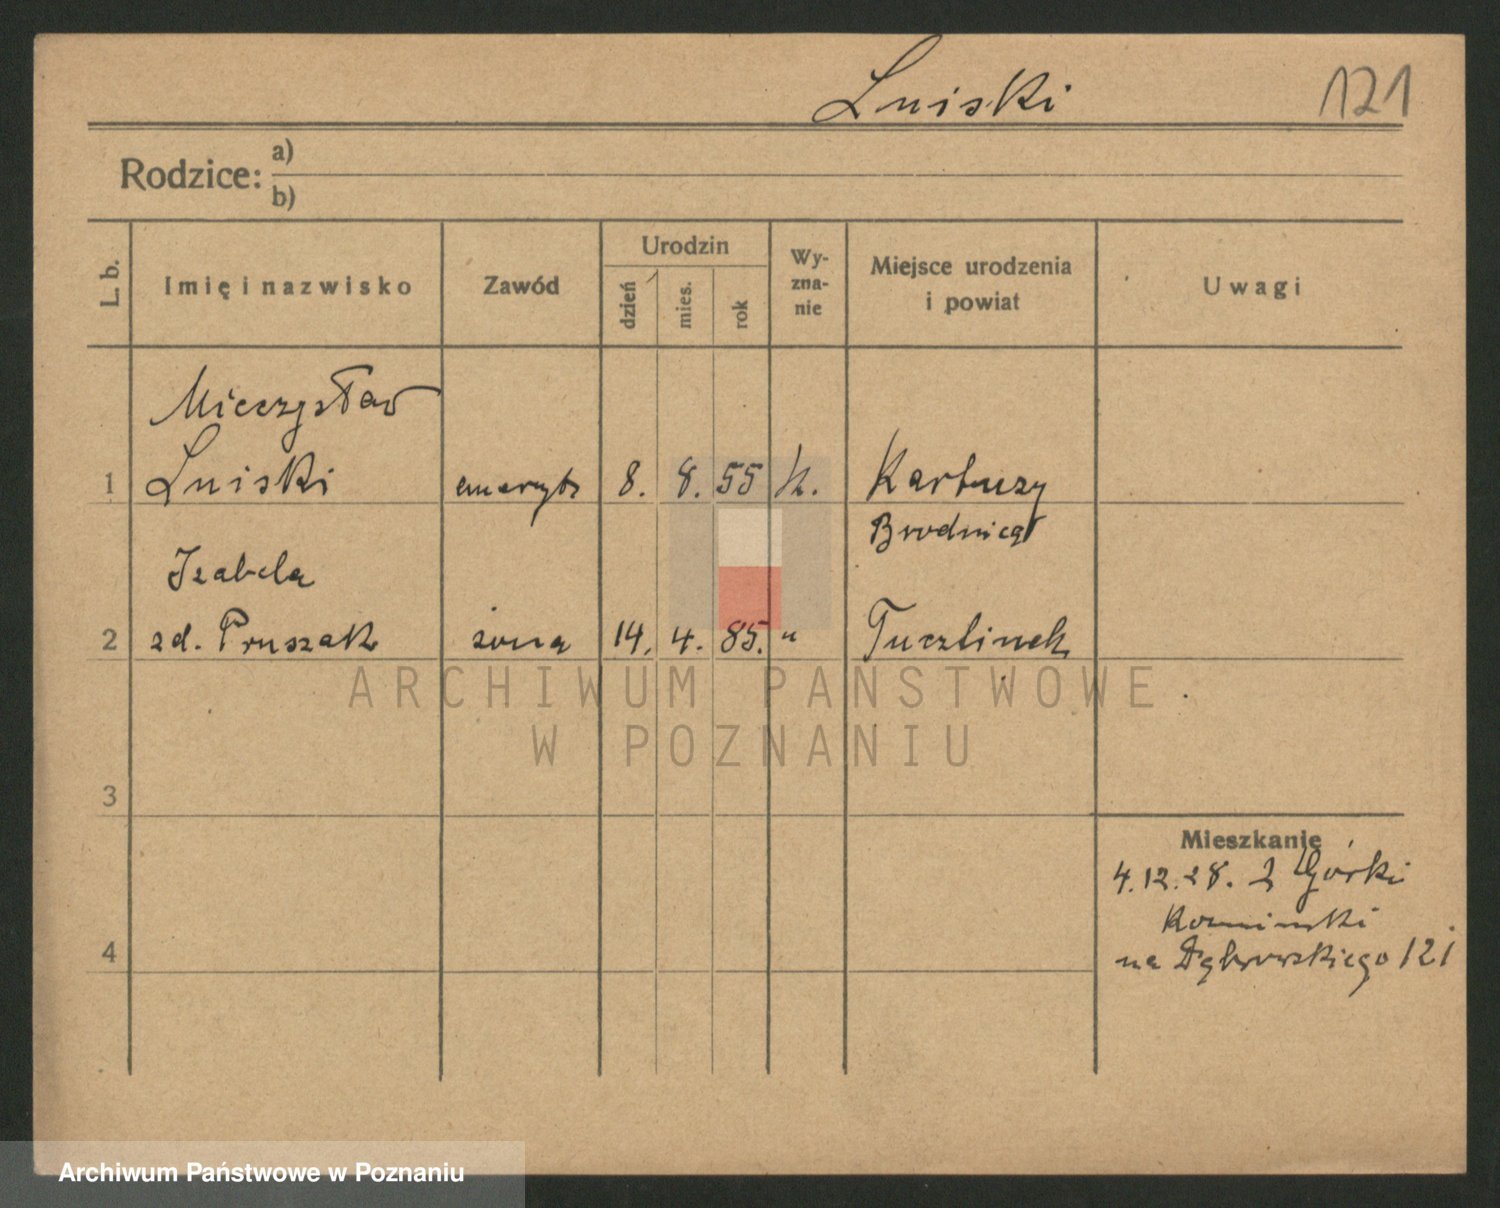 Lniski 121
Rodzice: a)
b)
L. b. Imię i nazwisko Zawód Urodzin dzień mies. rok Wy-zna-nie Miejsce urodzenia i powiat Uwagi
Mieczysław
1 Lniski emeryt 8. 8. 55 k. Kartuzy
Brodnica
Izabela
2 zd. Pruszak żona 14. 4. 85. " Tuczlinek
ARCHIWUM PAŃSTWOWE
W POZNANIU
3
Mieszkanie
4.12.28. z Górki
4 na Dąbrowskiego 121
Archiwum Państwowe w Poznaniu